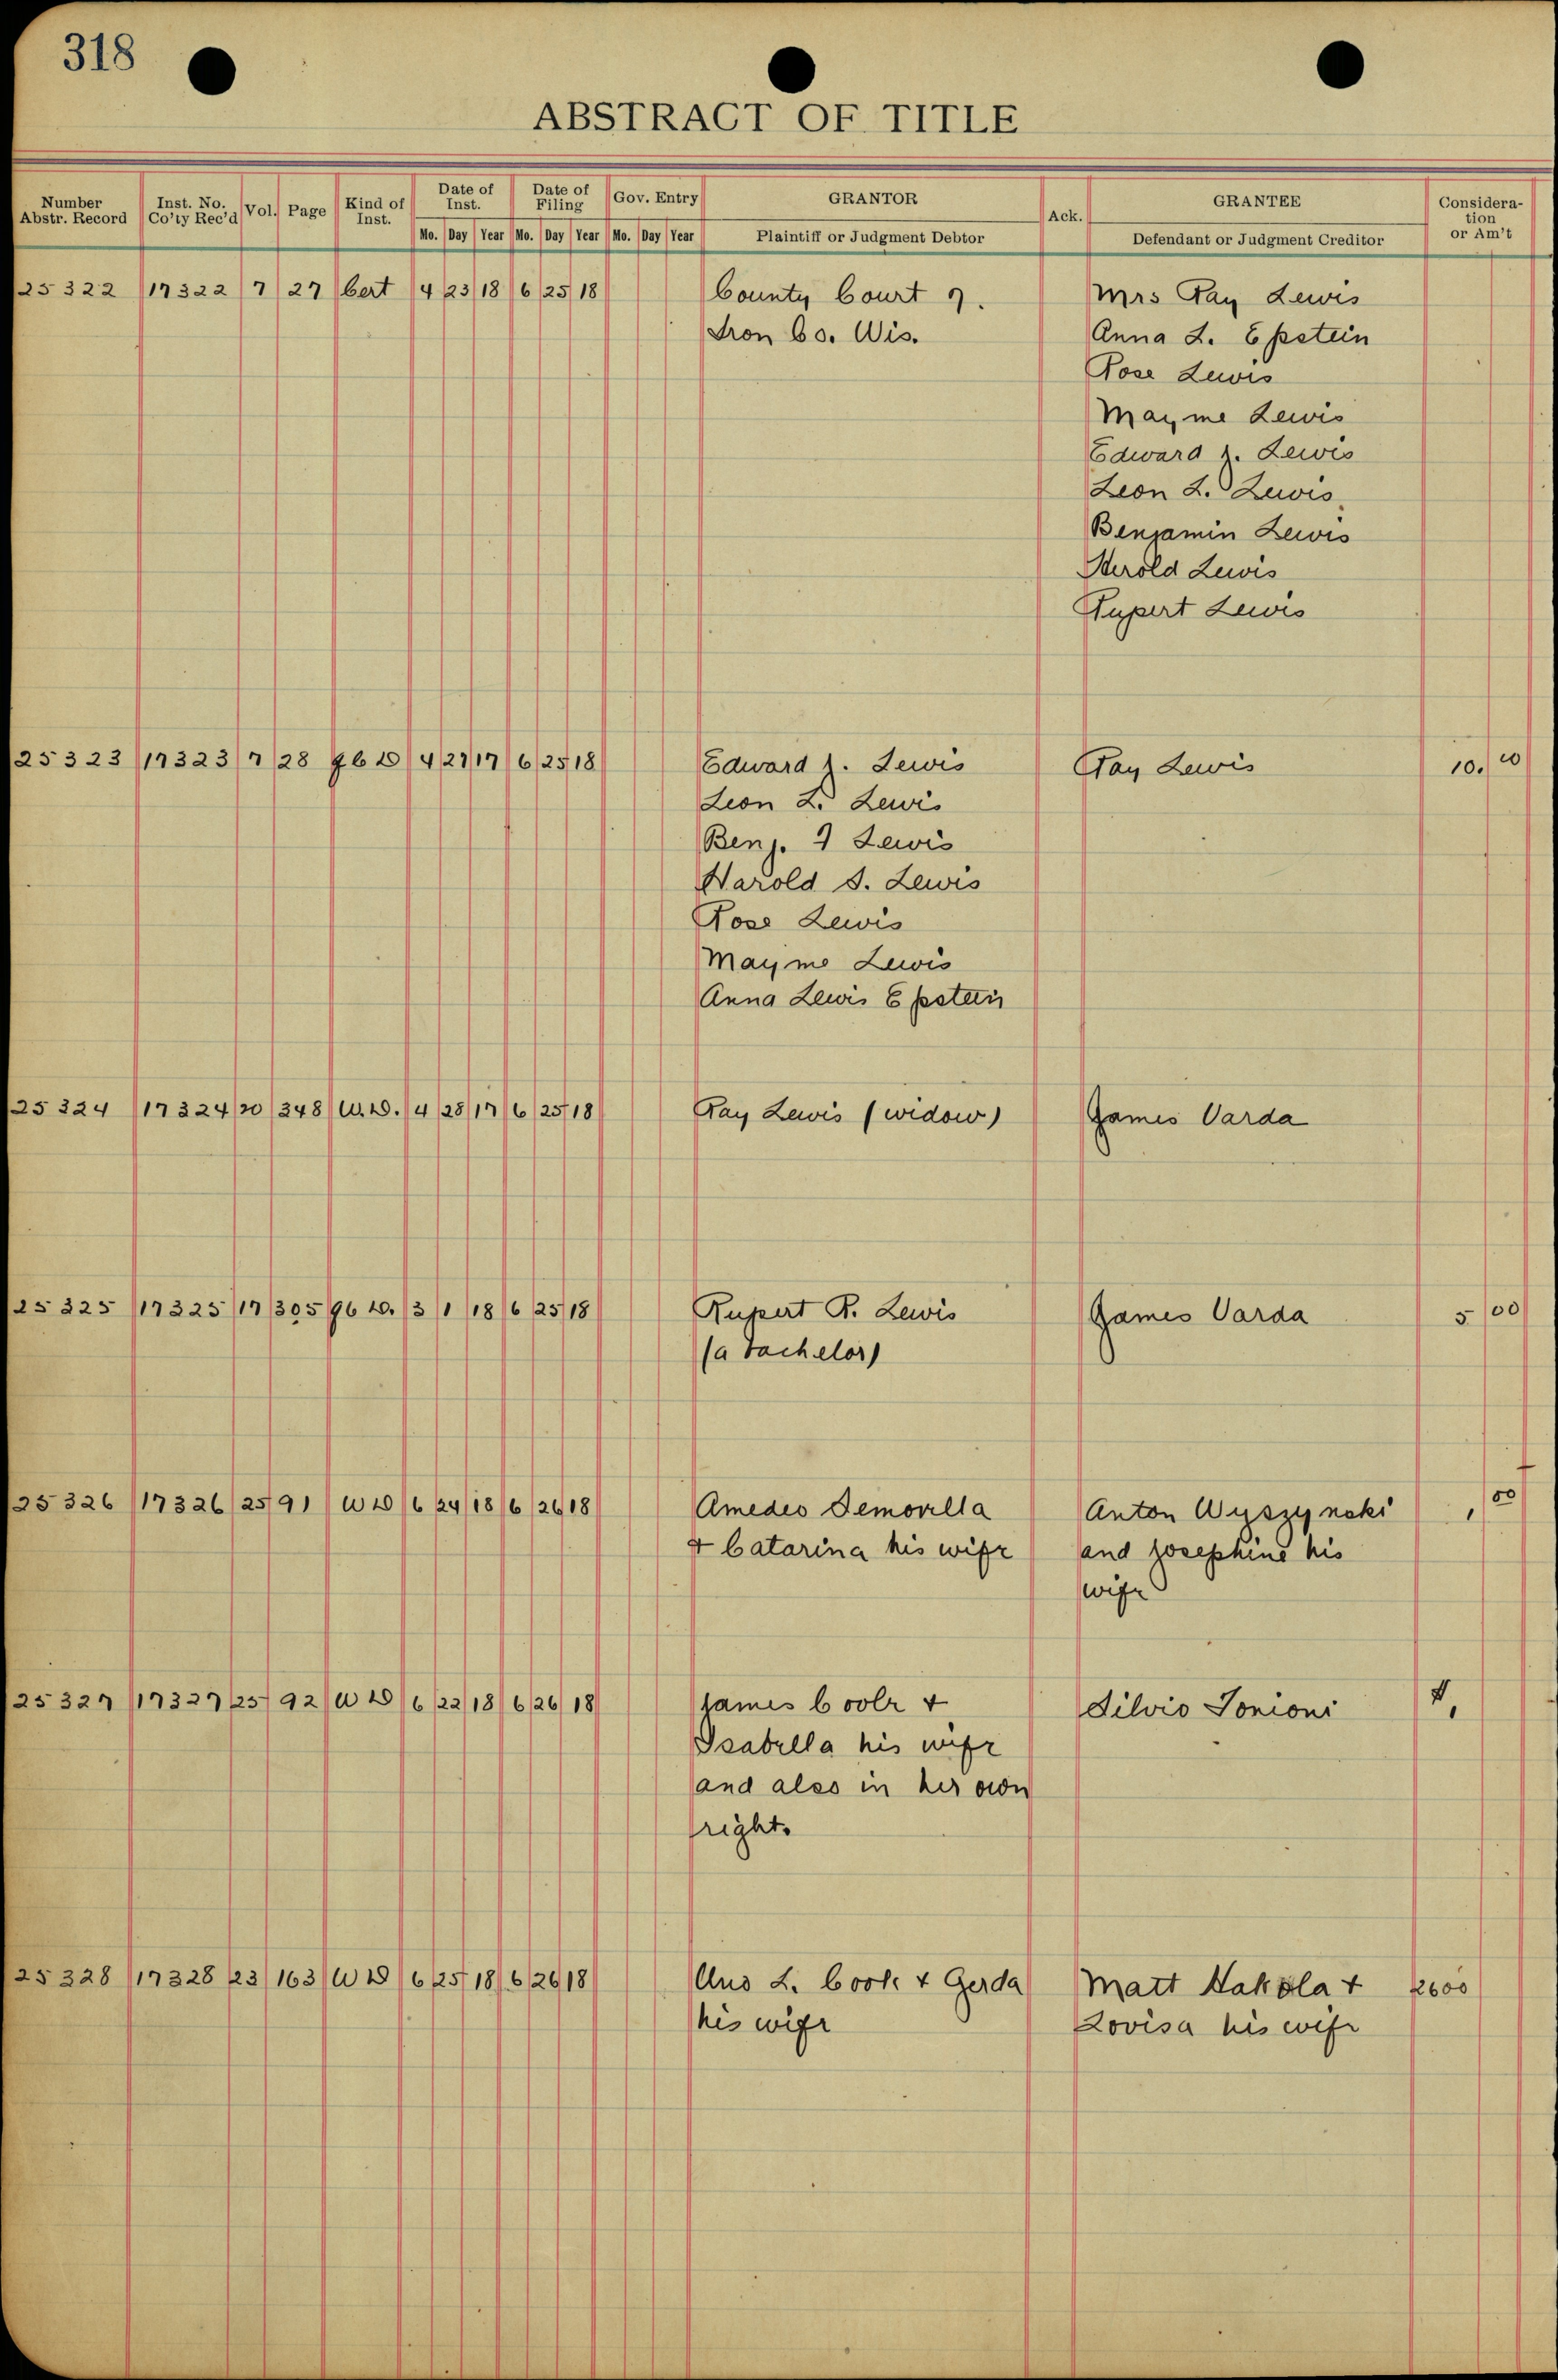 318
ABSTRACT OF TITLE
Number Abstr. Record | Inst. No. Co'ty Rec'd | Vol. | Page | Kind of Inst. | Date of Inst. | Date of Filing | Gov. Entry | GRANTOR | Ack. | GRANTEE | Consideration or Am't
Mo. Day Year Mo. Day Year Mo. Day Year | Plaintiff or Judgment Debtor | Defendant or Judgment Creditor
25322 17322 7 27 Cert 4 23 18 6 25 18 County Court Mrs Ray Lewis
Iron Co. Wis. Anna L. Epstein
Rose Lewis
Mayme Lewis
Edward J. Lewis
Leon L. Lewis
Benjamin Lewis
Herold Lewis
Rupert Lewis
25323 17323 7 28 Q C D 4 27 17 6 25 18 Edward J. Lewis Ray Lewis 10.00
Leon L. Lewis
Benj. I Lewis
Harold S. Lewis
Rose Lewis
Mayme Lewis
Anna Lewis Epstein
25324 17324 20 348 W.D. 4 28 17 6 25 18 Ray Lewis (widow) James Varda
25325 17325 17 305 Q C D. 3 1 18 6 25 18 Rupert R. Lewis James Varda 5 00
(a bachelor)
25326 17326 25 91 W D 6 24 18 6 26 18 Amedeo Semorilla Anton Wyszynski 1 00
& Catarina his wife and Josephine his
wife
25327 17327 25 92 W D 6 22 18 6 26 18 James Coole & Silvio Tonioni 1,
Isabella his wife
and also in her own
right.
25328 17328 23 163 W D 6 25 18 6 26 18 Aus L. Cook & Gerda Matt Hakola & 2600
his wife Lovisa his wife